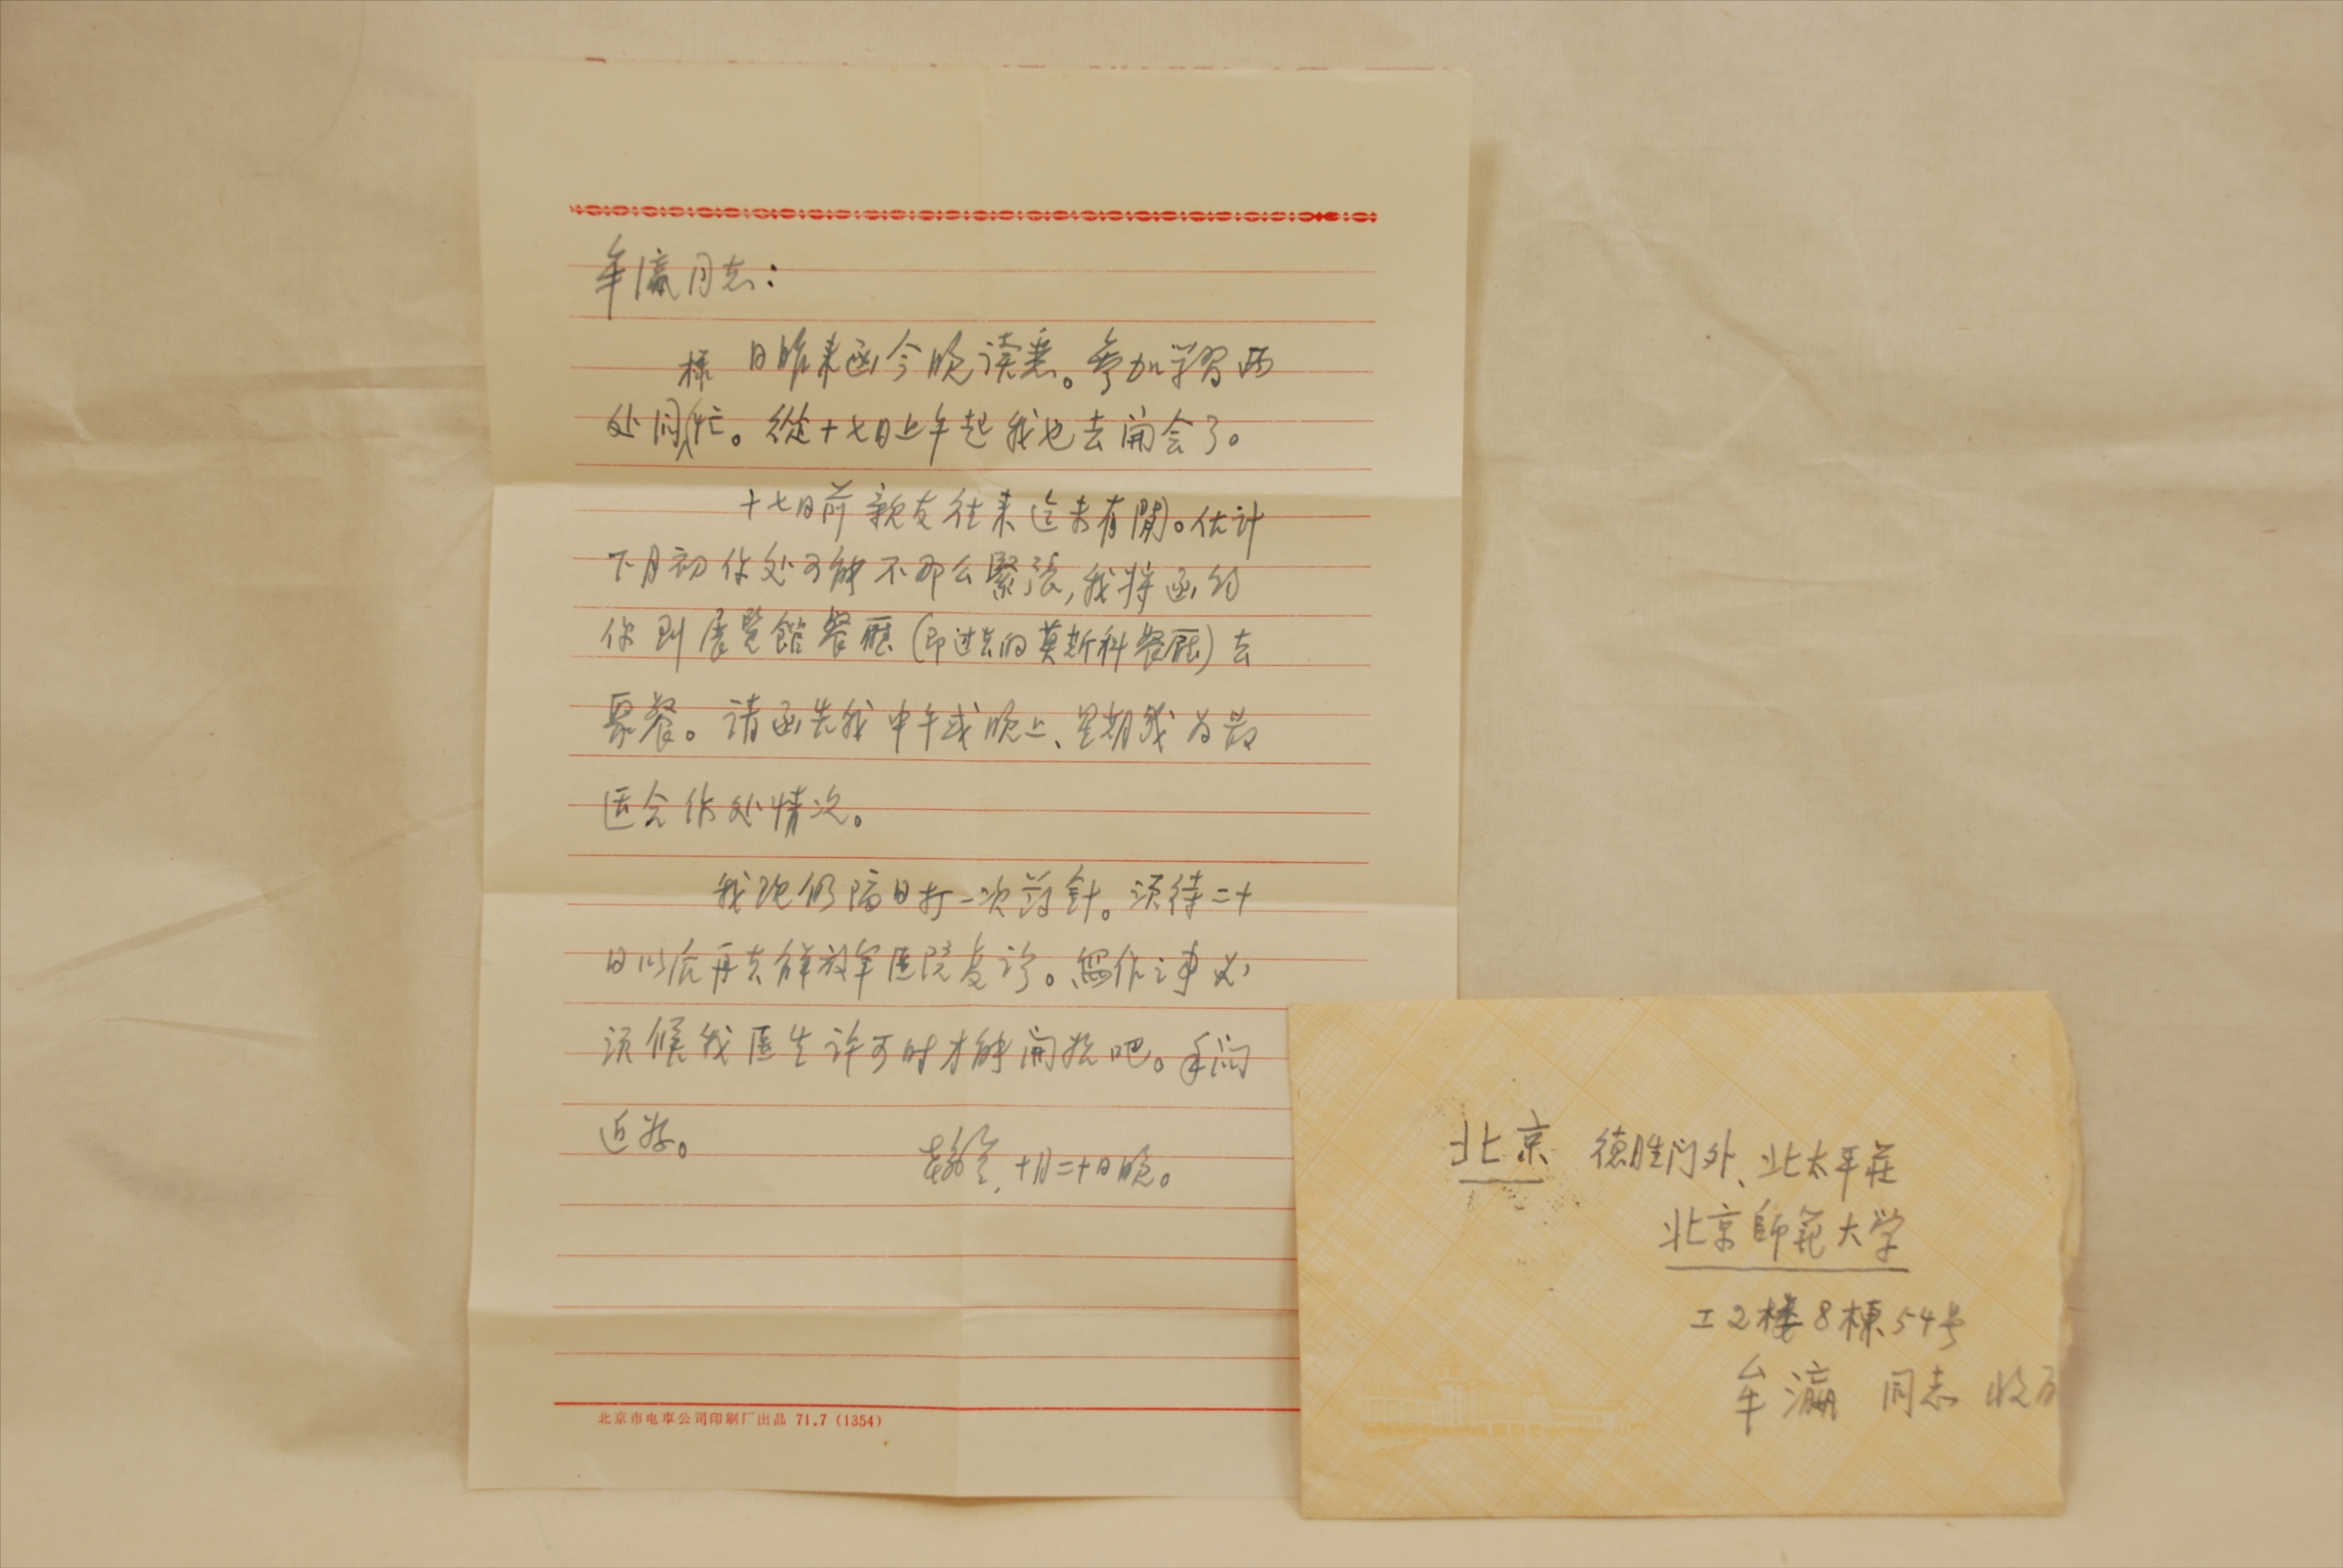 牟瀛同志：
日昨来函今晚读悉。参加学习两
处同忙。從十七日上午起我也去開会了。
十七日前親友往来迄未有閒。估计
下月初你处可能不那么緊張，我将函约
你到展覽館餐廳（即过去的莫斯科餐廳）去
聚餐。请函告我中午或晚上、星期幾为最
适合你处情况。
我现仍隔日打一次药針。须待二十
日以后再去解放军医院复诊。寫作之事必
须候我医生许可时才能開始吧。手问
近好。
十月二十日晚。
北京市电車公司印刷厂出品 71.7 (1354)
北京 德胜门外、北太平莊
北京師範大学
工2楼8棟54号
牟瀛 同志 收